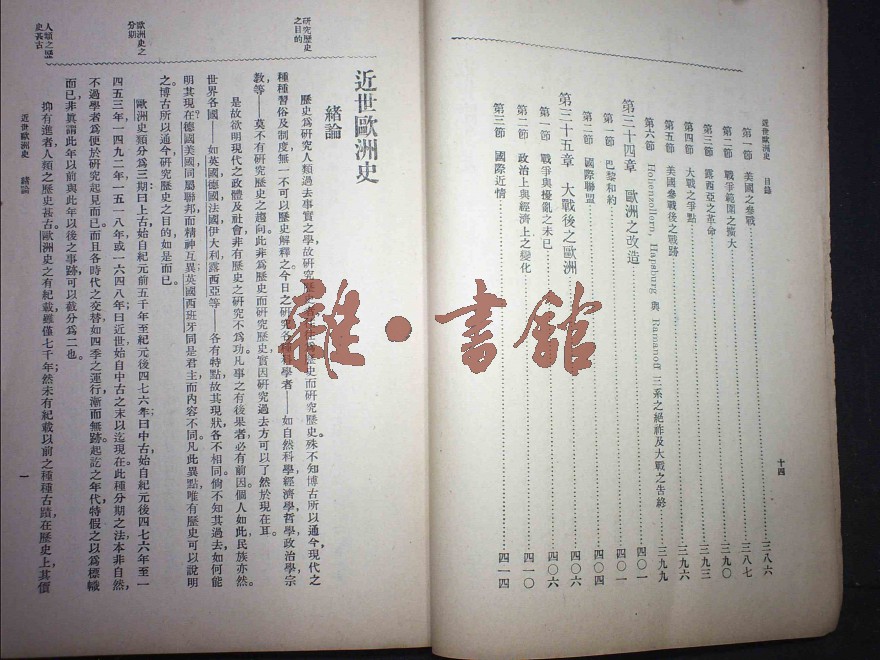 近世歐洲史 目錄
第一節 美國之參戰 三八六
第二節 戰爭範圍之擴大 三八七
第三節 露西亞之革命 三九〇
第四節 大戰之爭點 三九三
第五節 美國參戰後之戰跡 三九六
第六節 Hohenzollern, Hapsburg 與 Ramanoff 三系之絕祚及大戰之告終 三九九
第三十四章 歐洲之改造 四〇一
第一節 巴黎和約 四〇一
第二節 國際聯盟 四〇四
第三十五章 大戰後之歐洲 四〇六
第一節 戰爭與擾亂之未已 四〇六
第二節 政治上與經濟上之變化 四一〇
第三節 國際近情 四一四
十四
近世歐洲史
緒論
研究歷史之目的
歷史爲研究人類過去事實之學故研究歷史而研究歷史殊不知博古所以通今現代之
種種習俗及制度無一不可以歷史解釋之今日之研究各種科學者——如自然科學經濟學哲學政治學宗
教等——莫不有研究歷史之趨向此非爲歷史而研究歷史實因研究過去方可以了然於現在耳。
是故欲明現代之政體及社會非有歷史之研究不爲功凡事之有後果者必有前因個人如此民族亦然。
世界各國——如英國德國法國伊大利露西亞等——各有特點故其現狀各不相同倘不知其過去如何能
明其現在德國美國同屬聯邦而精神互異英國西班牙同是君主而內容不同凡此異點唯有歷史可以說明
之博古所以通今研究歷史之目的如是而已。
歐洲史之分期
歐洲史類分爲三期曰上古始自紀元前五千年至紀元後四七六年曰中古始自紀元後四七六年至一
四五三年一四九二年一五一八年或一六四八年曰近世始自中古之末以迄現在此種分期之法本非自然
不過學者爲便於研究起見而已而且各時代之交替如四季之運行漸而無跡起訖之年代特假之以爲標幟
而已非真謂此年以前與此年以後之事跡可以截分爲二也。
人類之歷史甚古
抑有進者人類之歷史甚古歐洲史之有紀載雖僅七千年然未有紀載以前之種種古蹟在歷史上其價
近世歐洲史 緒論
一
雜·書館